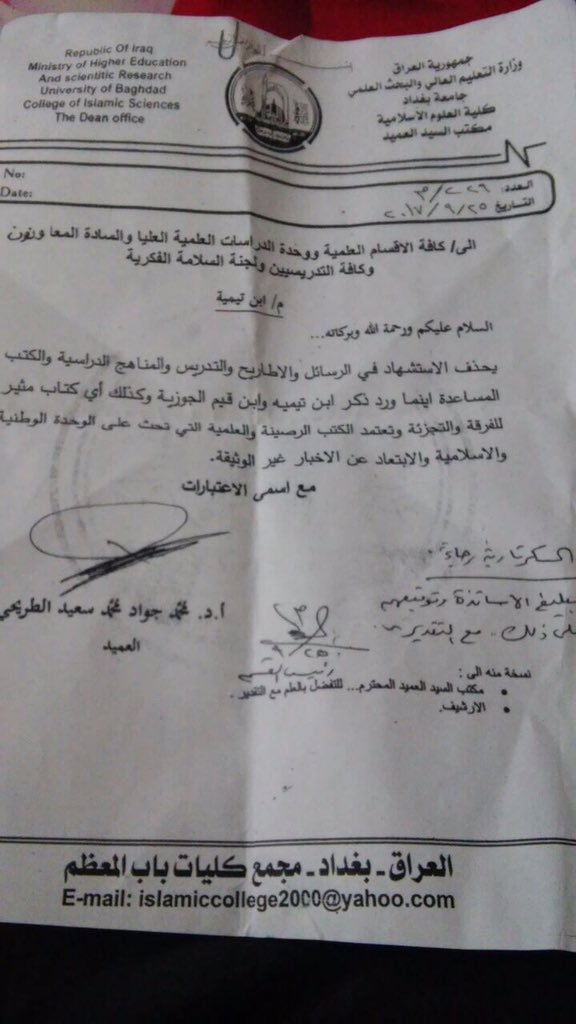 Republic Of Iraq
Ministry of Higher Education
And scientitic Research
University of Baghdad
College of Islamic Sciences
The Dean office
جمهورية العراق
وزارة التعليم العالي والبحث العلمي
جامعة بغداد
كلية العلوم الاسلامية
مكتب السيد العميد
No:
Date:
العدد: ٣/٢٢٦
التاريخ ٢٠١٧/٩/٢٥
الى/ كافة الاقسام العلمية ووحدة الدراسات العلمية العليا والسادة المعاونون
وكافة التدريسيين ولجنة السلامة الفكرية
م/ ابن تيمية
السلام عليكم ورحمة الله وبركاته...
يحذف الاستشهاد في الرسائل والاطاريح والتدريس والمناهج الدراسية والكتب
المساعدة اينما ورد ذكر ابن تيميه وابن قيم الجوزية وكذلك أي كتاب مثير
للفرقة والتجزئة وتعتمد الكتب الرصينة والعلمية التي تحث على الوحدة الوطنية
والاسلامية والابتعاد عن الاخبار غير الوثيقة.
مع اسمى الاعتبارات
أ.د. محمد جواد محمد سعيد الطريحي
العميد
السكرتارية رجاءً
تبليغ الاساتذة وتوقيعهم
على ذلك.. مع التقدير
رئيس القسم
نسخة منه الى :
• مكتب السيد العميد المحترم... للتفضل بالعلم مع التقدير .
• الارشيف.
العراق - بغداد - مجمع كليات باب المعظم
E-mail: islamiccollege2000@yahoo.com